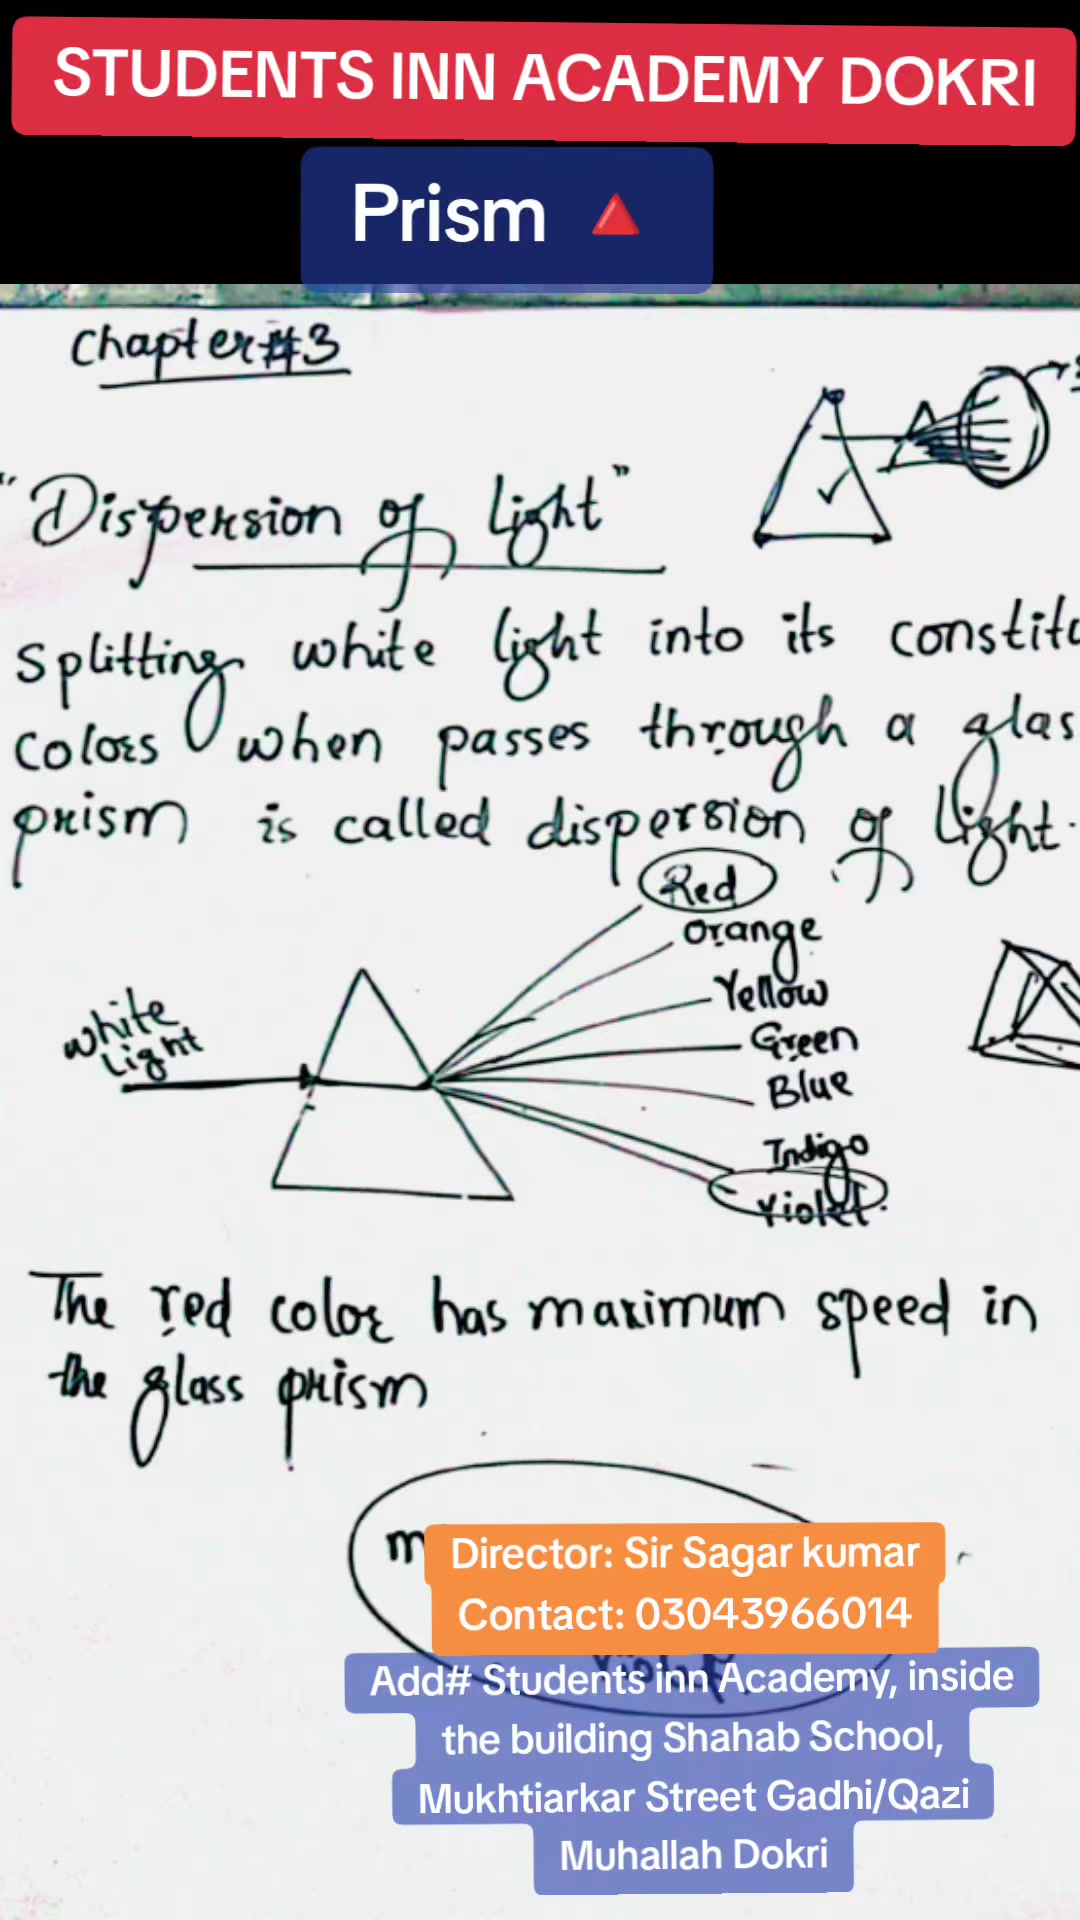 STUDENTS INN ACADEMY DOKRI
Prism 🔺
Chapter#3
"Dispersion of light"
Splitting white light into its
colors when passes through a
prism is called dispersion of light.
Red
Orange
Yellow
White
Light
Green
Blue
Indigo
Violet.
The red color has maximum speed in
the glass prism
Director: Sir Sagar kumar
Contact: 03043966014
Add# Students inn Academy, inside
the building Shahab School,
Mukhtiarkar Street Gadhi/Qazi
Muhallah Dokri